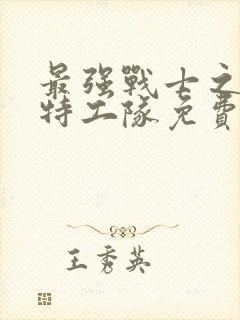 最強戰士之
特工隊免費
王秀英